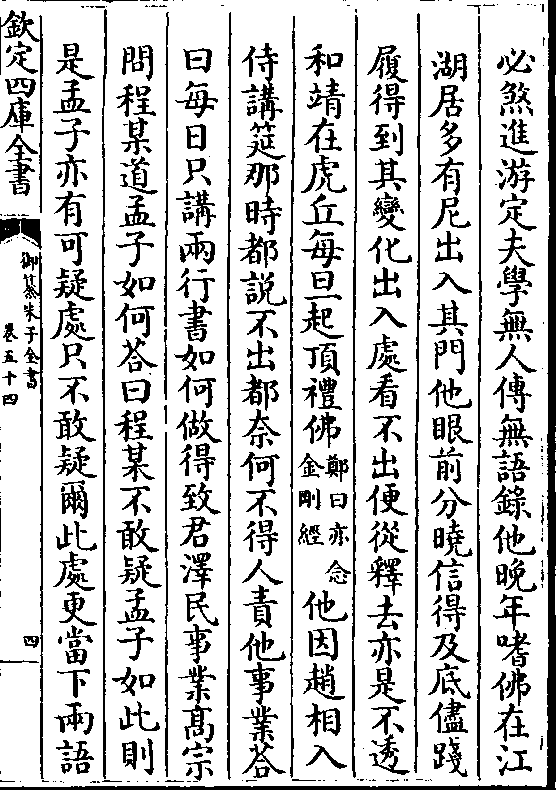 必煞進游定夫學無人傳無語錄他晚年嗜佛在江
湖居多有尼出入其門他眼前分曉信得及底儘踐
履得到其變化出入處看不出便從釋去亦是不透
和靖在虎丘每旦起頂禮佛鄭曰亦念金剛經他因趙相入
侍講筵那時都説不出都奈何不得人責他事業荅
曰每日只講兩行書如何做得致君澤民事業髙宗
問程某道孟子如何荅曰程某不敢疑孟子如此則
是孟子亦有可疑處只不敢疑爾此處更當下兩語
欽定四庫全書
御纂朱子全書
卷五十四
四